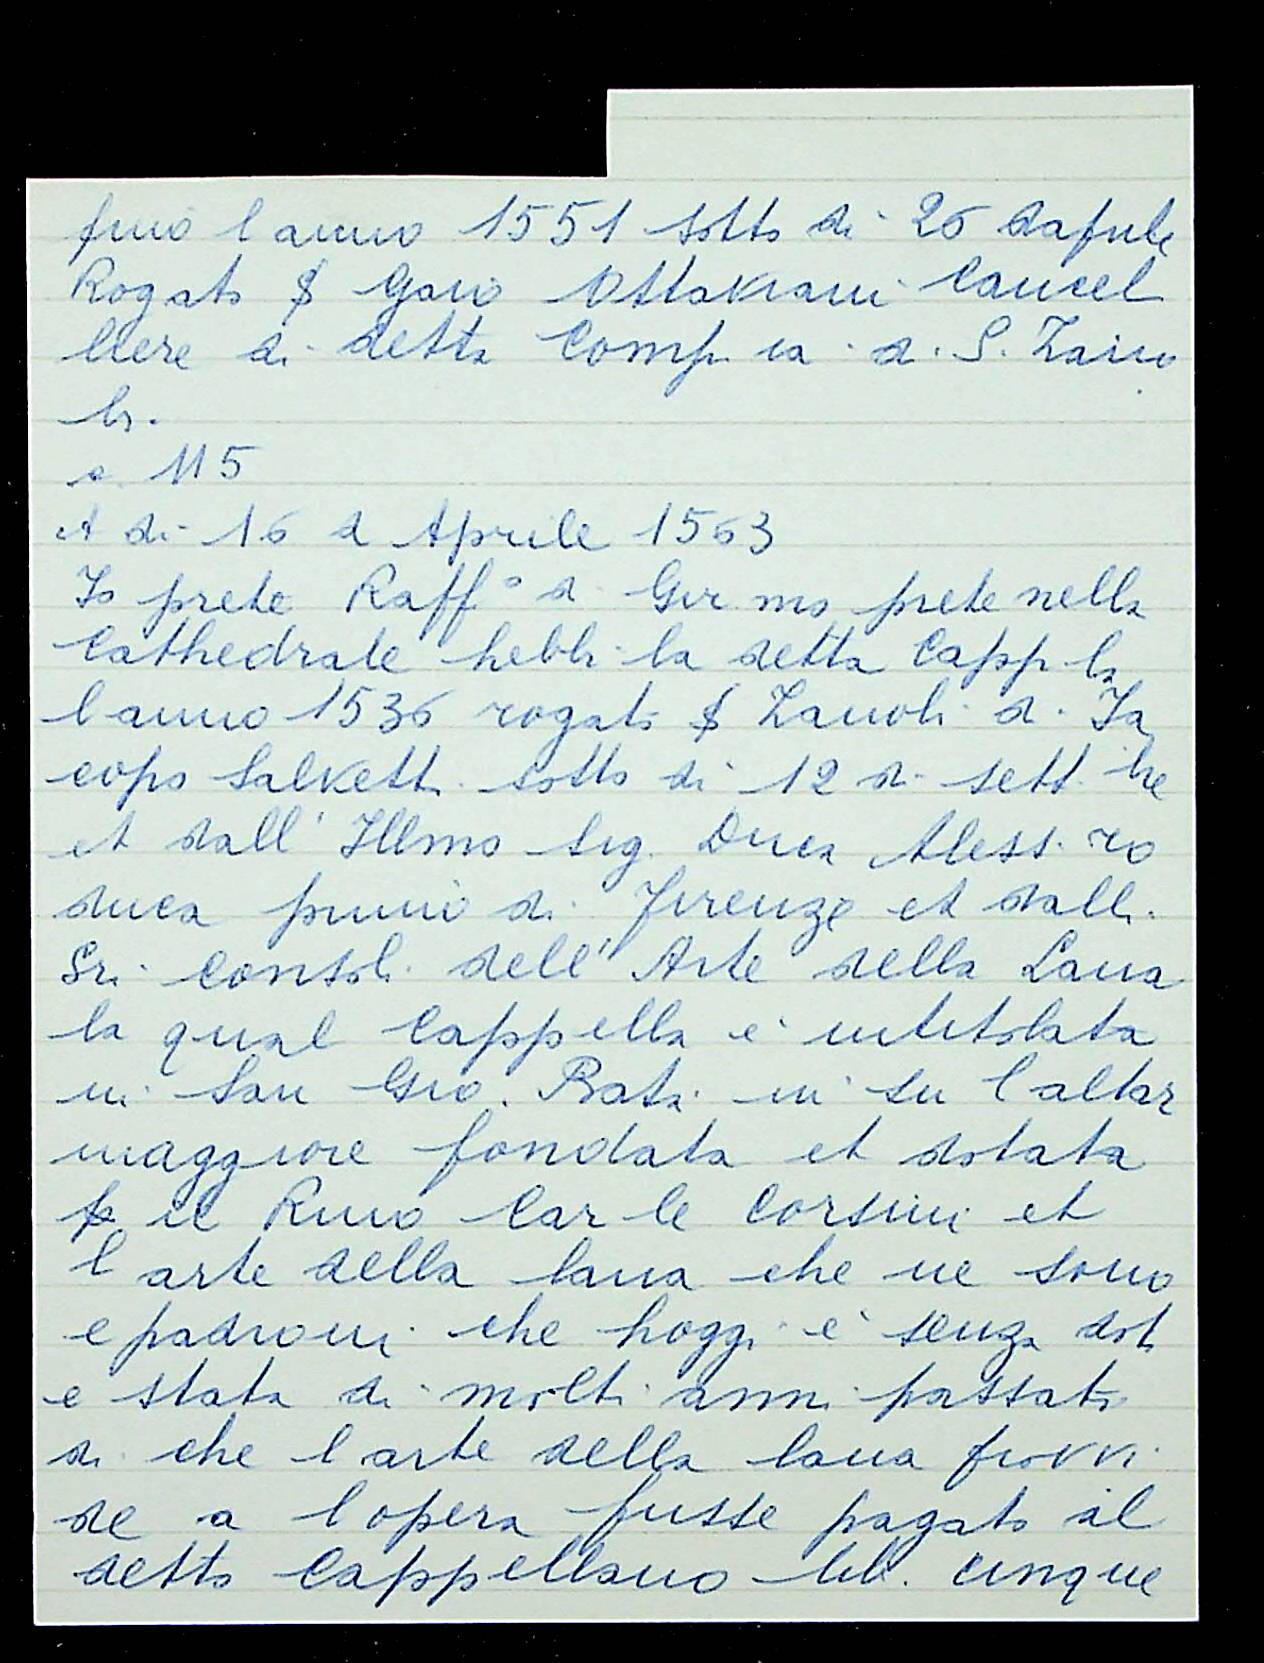 fino l anno 1551 sotto di 26 daprile
Rogato p Gav̄o Ottaviani Cancel
liere di detta Comp. ia di S. Zano
bi.
c. 115
A di 16 d Aprile 1563
Io prete Raff° d Gir mo prete nella
Cathedrale hebbi la detta Capp la
l anno 1536 rogato p Zanobi di Ja
copo Salvetti sotto di 12 di sett. bre
et dall' Illmo Sig. Duca Aless. ro
duca primo di Firenze et dalli
Sri Consoli dell' Arte della Lana
la qual Cappella è intitolata
in San Gio. Bata in su l altar
maggiore fondata et dotata
p il Rmo Car le Corsini et
l arte della lana che ne sono
e padroni che hoggi è senza dota
e stata di molti anni passati
di che l arte della lana provvi
de a l opera fusse pagato al
detto Cappellano lib. cinque